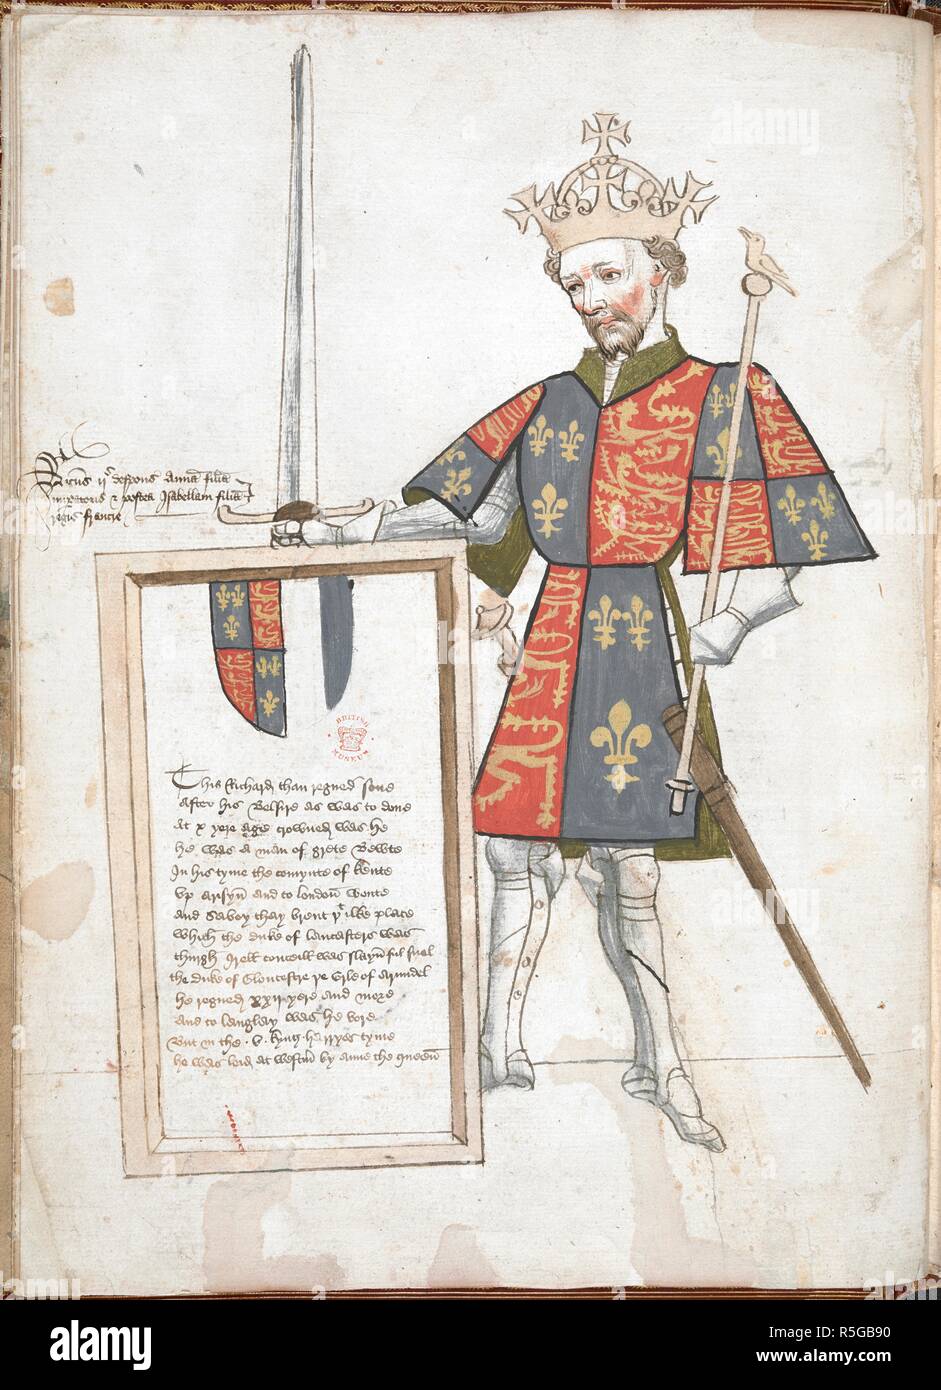 Ricus ij desponsa Anna filia
imperatoris & postea Isabellam filia
regis francie
BRITISH MUSEUM
This Richard than regned sone
After his Belsire as was to done
At x yere age crowned was he
he was a man of grete Bewte
In his tyme the comynte of kente
vp arysyn and to london wente
and Savoy thay brent yt ilke place
which the duke of lancasters was
thurgh ill conceill was slayn ful snel
the duke of Gloucestre ye Erle of arundel
he regned xxij yere and more
and to langley was he bore
But in the .v. kyng henryes tyme
he was leid at westm by anne the queen
alamy
alamy stock photo
R5GB90
www.alamy.com